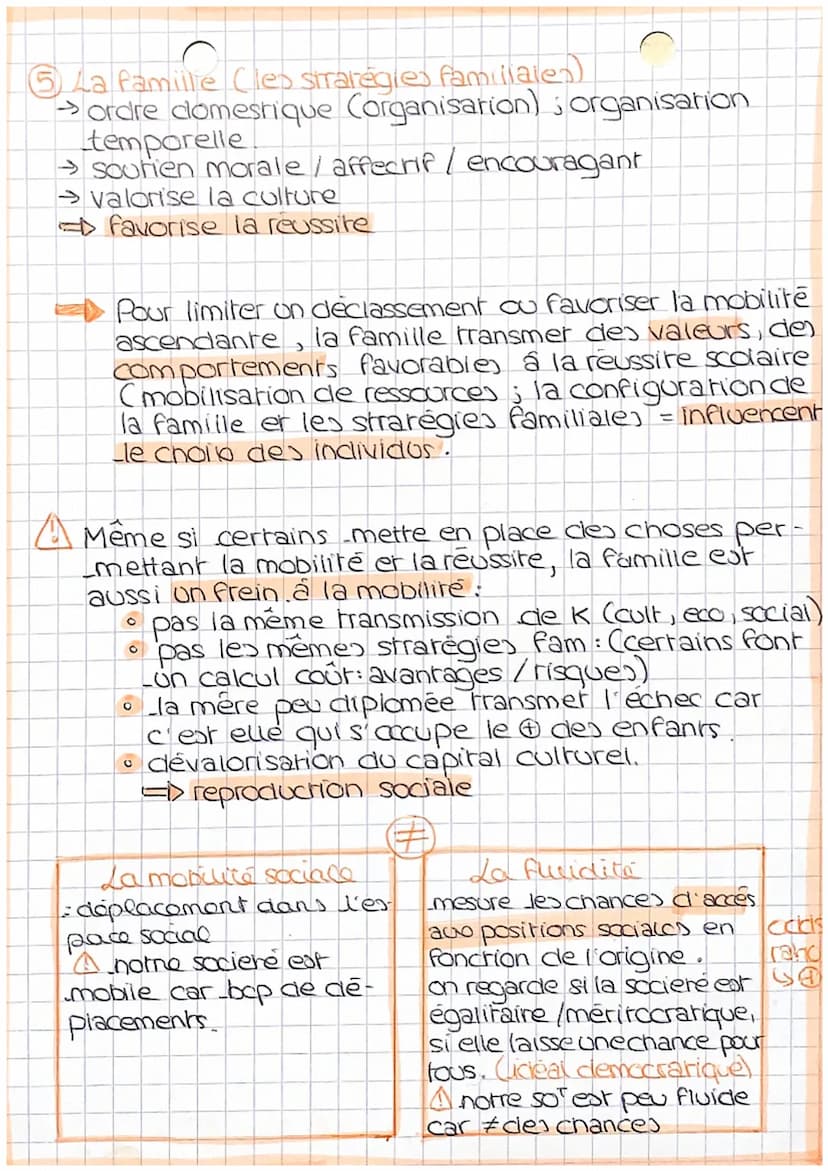 ⑤ La famille (les stratégies familiales)
→ ordre domestique (organisation) ; organisation
temporelle.
→ soutien morale / affectif / encouragant
→ valorise la culture
⇒ favorise la réussite
➡ Pour limiter un déclassement ou favoriser la mobilité
ascendante, la famille transmet des valeurs, des
comportements favorables à la réussite scolaire
(mobilisation de ressources ; la configuration de
la famille et les stratégies familiales = influencent
le choix des individus.
⚠ Même si certains mette en place des choses per-
mettant la mobilité et la réussite, la famille est
aussi un frein à la mobilité :
o pas la même transmission de K (cult, eco, social)
o pas les mêmes stratégies fam : (certains font
un calcul coût : avantages / risques)
o la mère peu diplomée transmet l'échec car
c'est elle qui s'occupe le ⊕ des enfants.
o dévalorisation du capital culturel.
⇒ reproduction sociale
≠
La mobilité sociale
: déplacement dans l'es-
pace social
⚠ notre societé est
mobile car bcp de dé-
placements.
La fluidité
mesure les chances d'accés
aux positions sociales en
fonction de l'origine.
on regarde si la societé est
égalitaire / méritocratique,
si elle laisse une chance pour
tous. (idéal democratique)
⚠ notre soᵀ est peu fluide
car ≠ des chances
↳ ⊕